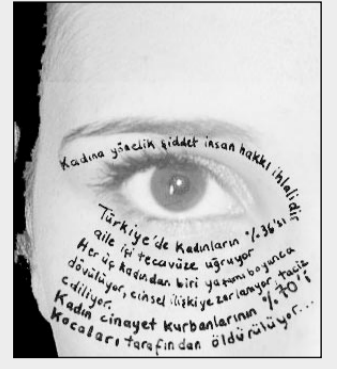 Kadına yönelik şiddet insan hakkı ihlalidir
Türkiye'de kadınların %36'sı
aile içi tecavüze uğruyor
Her üç kadından biri yaşamı boyunca
dövülüyor, cinsel ilişkiye zorlanıyor, taciz
ediliyor.
Kadın cinayet kurbanlarının %70'i
Kocaları tarafından öldürülüyor...